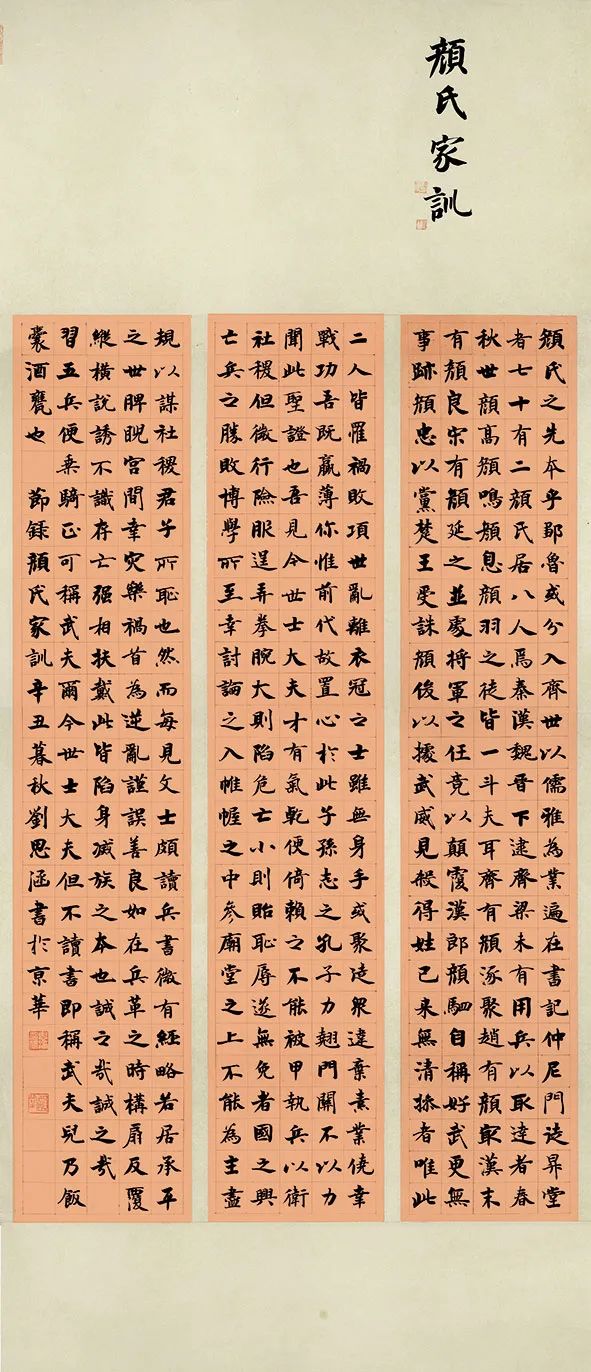 顔氏家訓
顔氏之先本乎鄒魯或分入齊世以儒雅為業遍在書記仲尼門徒昇堂
者七十有二顔氏居八人焉秦漢魏晉下逮齊梁未有用兵以取達者春
秋世顔高顔鳴顔息顔羽之徒皆一斗夫耳齊有顔涿聚趙有顔冣漢末
有顔良宋有顔延之並處將軍之任竟以顛覆漢郎顔駟自稱好武更無
事跡顔忠以黨楚王受誅顔俊以據武威見殺得姓已來無清操者唯此
二人皆罹禍敗項世亂離衣冠之士雖無身手或聚徒眾違棄素業僥幸
戰功吾既羸薄你惟前代故置心於此子孫志之孔子力翹門關不以力
聞此聖證也吾見今世士大夫才有氣乾便倚賴之不能被甲執兵以衛
社稷但微行險服逞弄拳腕大則陷危亡小則貽恥辱遂無免者國之興
亡兵之勝敗博學所至幸討論之入帷幄之中參廟堂之上不能為主盡
規以謀社稷君子所恥也然而每見文士頗讀兵書微有經略若居承平
之世睥睨宮間幸災樂禍首為逆亂謹誤善良如在兵革之時構扇反覆
縱橫說誘不識存亡强相扶戴此皆陷身滅族之本也誡之哉誡之哉
習五兵便乘騎正可稱武夫爾今世士大夫但不讀書即稱武夫兒乃飯
囊酒甕也 節録顔氏家訓辛丑暮秋劉思涵書於京華